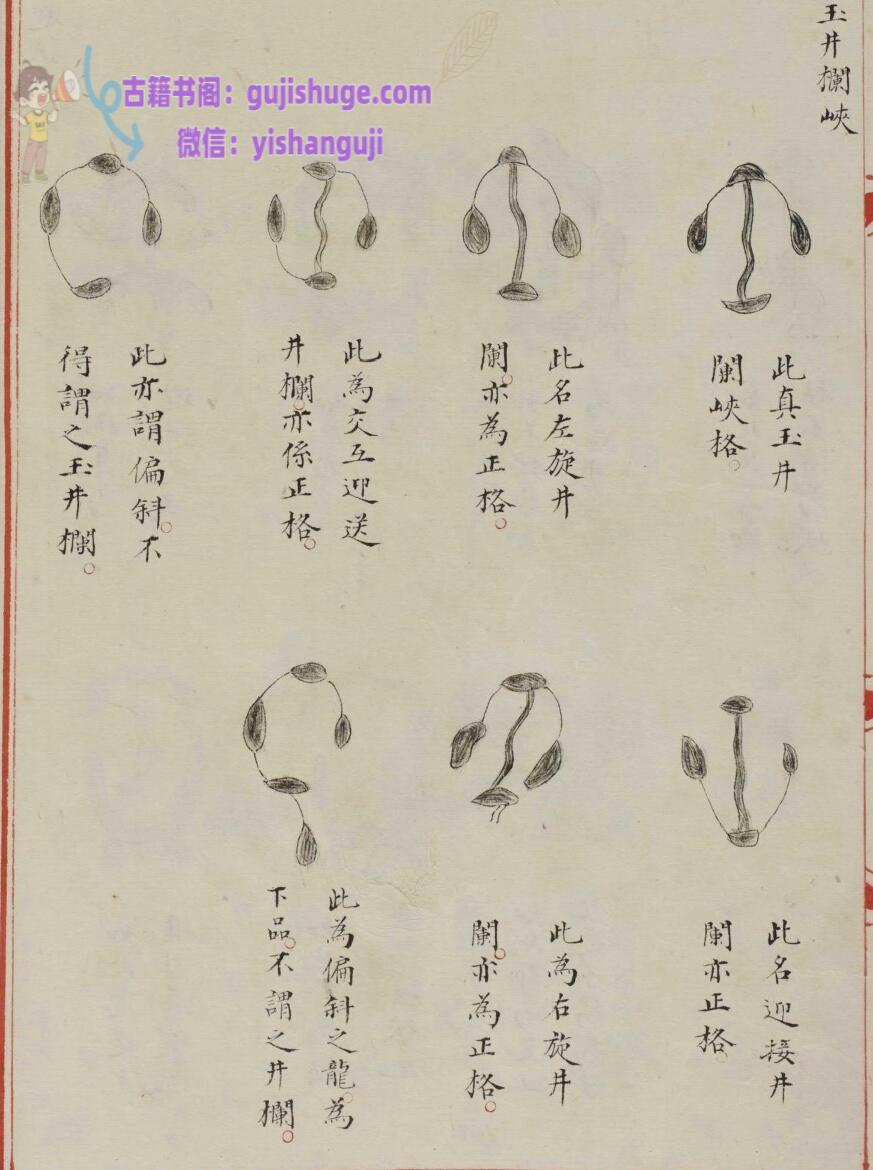 玉井欄峽
此真玉井
闌峽格。
此名左旋井
闌。亦為正格。
此為交互迎送
井欄。亦係正格。
此亦謂偏斜。不
得謂之玉井欄。
此名迎接井
闌亦正格。
此為右旋井
闌。亦為正格。
此為偏斜之龍。為
下品。不謂之井欄。
古籍书阁：gujishuge.com
微信：yishanguji